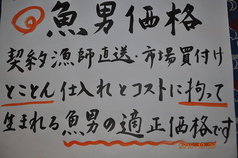 魚男価格
契約漁師直送・市場買付け
とことん仕入れとコストに拘って
生まれる魚男の適正価格です